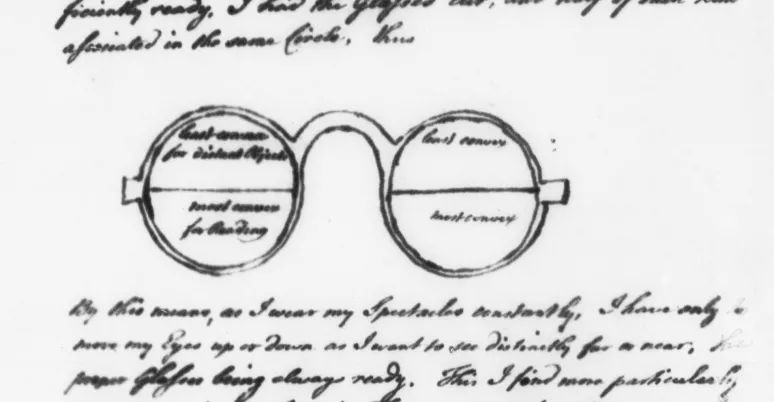 ficiently ready, I had the Glasses cut, and half of each kind
associated in the same Circle, thus
least convex
for distant Objects
most convex
for Reading
least convex
most convex
By this means, as I wear my Spectacles constantly, I have only to
move my Eyes up or down as I want to see distinctly far or near, the
proper Glasses being always ready. This I find more particularly